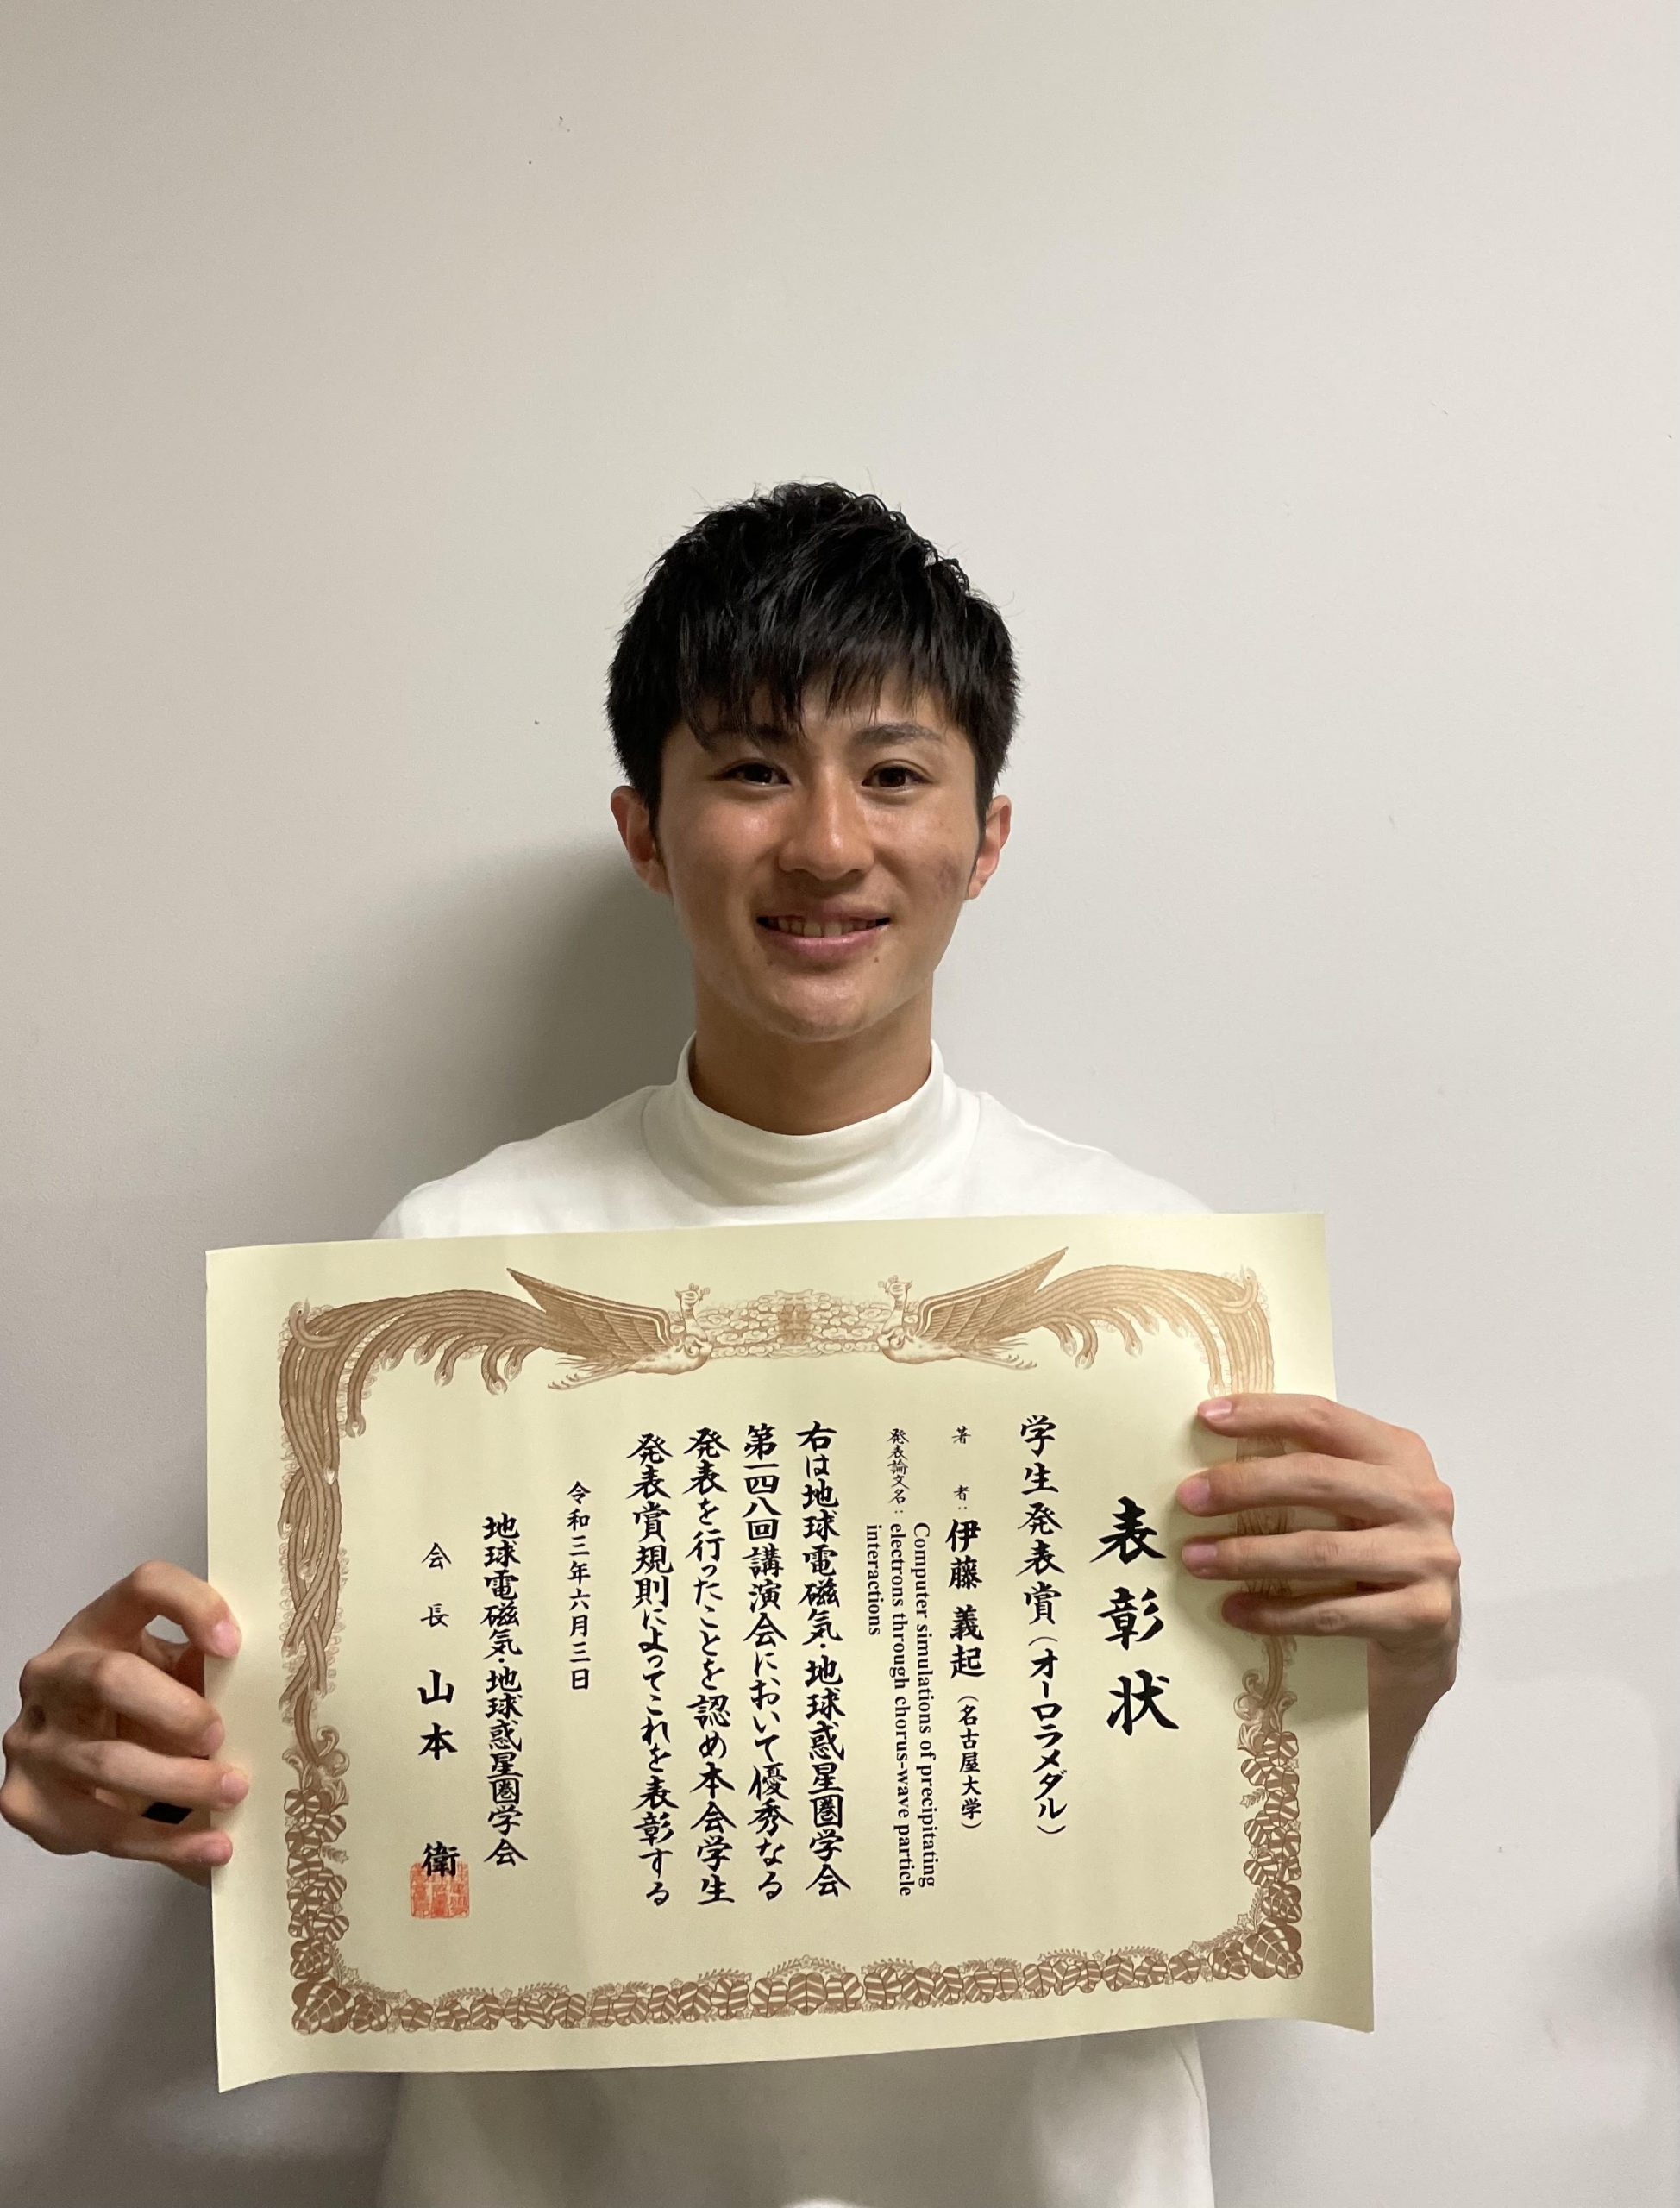 表彰状
学生発表賞（オーロラメダル）
著者：伊藤 義起（名古屋大学）
発表論文名：Computer simulations of precipitating
electrons through chorus-wave particle
interactions
右は地球電磁気・地球惑星圏学会
第一四八回講演会において優秀なる
発表を行ったことを認め本会学生
発表賞規則によってこれを表彰する
令和三年六月三日
地球電磁気・地球惑星圏学会
会長 山本 衛